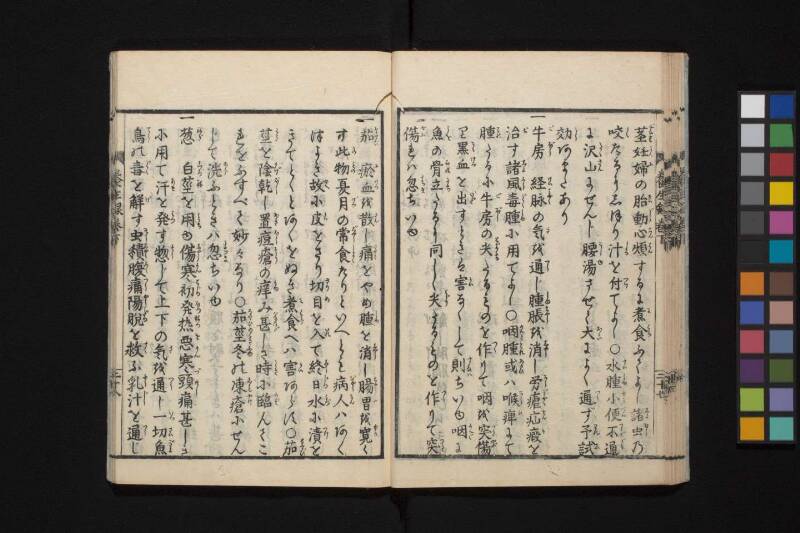 茎妊婦の胎動心煩するに煮食ふてよし諸虫乃
咬たるにしぼり汁を付てよし〇水腫小便不通
に沢山にせんじ腰湯させて大によく通ず予試
効あまたあり
一牛房 経脉の気を通し腫脹を消し労瘧疝瘕を
治す諸風毒腫に用てよし〇咽腫或ハ喉痺にて
腫るに牛房の矢たるものを作りて咽を突傷
り黒血を出すときハ害なくして則ちいゆ咽に
魚の骨立たるにも同しく矢たるものを作りて突
傷れハ忽ちいゆ
一茄 瘀血を散し痛をやめ腫を消し腸胃を寛く
す此物夏月の常食たりといへとも病人ハあしく
はき故に皮をさり切目を入て終日水に漬を
きてとくとあくをぬき煮食へハ害あらす〇茄
茎を陰乾し置痘瘡の痒み甚しき時に臨んてこ
れをふすべて妙なり〇茄茎冬の凍瘡にせん
じて洗ふときハ忽ちいゆ
一葱 白茎を用ゆ傷寒初発熱悪寒頭痛甚しき
に用て汗を発す惣して上下の気を通し一切魚
鳥の毒を解す虫積腹痛陽脱を救ふ乳汁を通し
養生録 巻下
二十八